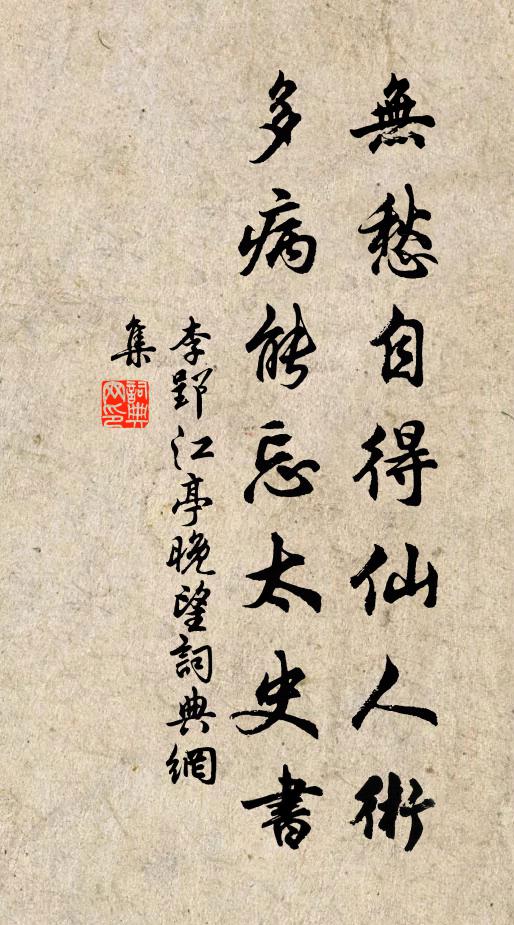 無愁自得仙人術
多病能忘太史書
李郢江亭晚望詞典網
集
詞典
网印